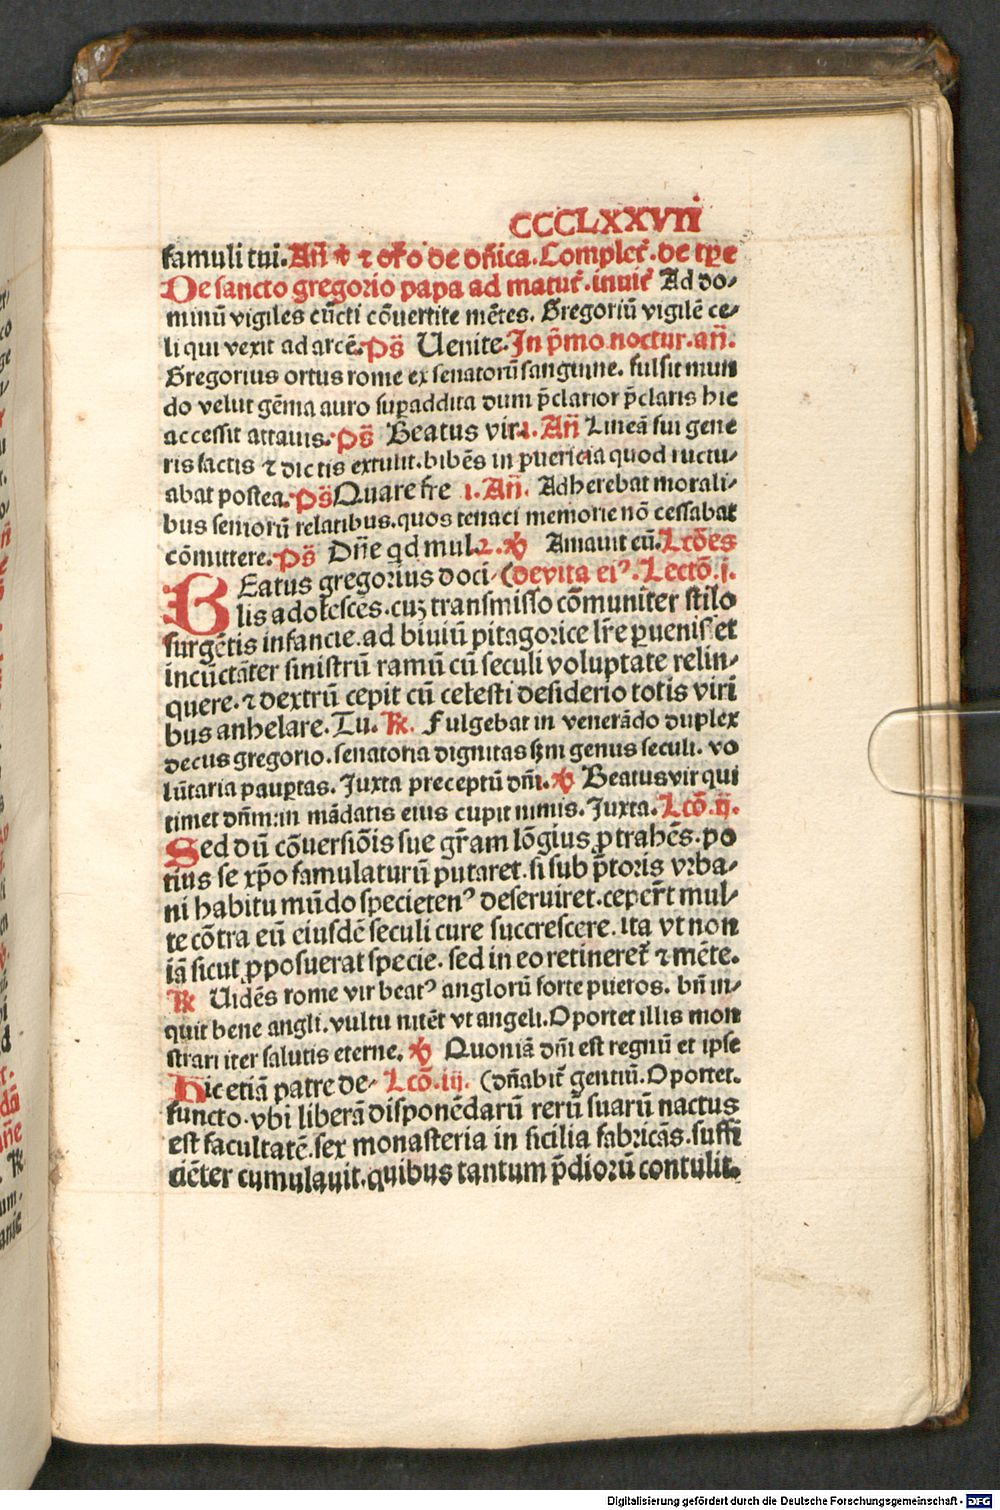 CCCCLXXVII
famuli tui. Añ ⁊ or̃o de dñica. Complet̃. de tp̃e
De sancto gregorio papa ad matut̃. inuit̃ Ad do-
minũ vigiles cũcti cõuertite mẽtes. Gregoriũ vigilẽ ce-
li qui vexit ad arcẽ. Ps̃ Uenite. In p̃mo noctur. añ.
Gregorius ortus rome ex senatorũ sanguine. fulsit mun
do velut gẽma auro suꝑaddita dum p̃clarior p̃claris hic
accessit attauis. Ps̃ Beatus vir. Añ Lineã sui gene
ris factis ⁊ dictis extulit. bibẽs in puericia quod ructu-
abat postea. Ps̃ Quare fre 1. Añ. Adherebat morali-
bus seniorũ relatibus. quos tenaci memorie nõ cessabat
cõmittere. Ps̃ Dñe qd mul. 2. ℣ Amauit eũ. Lcões
BEatus gregorius doci- (de vita eiꝰ. Lectõ. j.
lis adolesces. cuȝ transmisso cõmuniter stilo
surgẽtis infancie. ad biuiũ pitagorice lr̃e ꝑuenis̃et
incũctãter sinistrũ ramũ cũ seculi voluptate relin-
quere. ⁊ dextrũ cepit cũ celesti desiderio totis viri
bus anhelare. Tu. ℟. Fulgebat in venerãdo duplex
decus gregorio. senatoria dignitas ẜm genus seculi. vo
lũtaria pauꝑtas. Juxta preceptũ dñi. ℣ Beatus vir qui
timet dñm: in mãdatis eius cupit nimis. Juxta. Lcõ. ij.
Sed dũ cõuersiõis sue gr̃am lõgius ꝓtrahẽs. po
tius se xp̃o famulaturũ putaret. si sub p̃toris vrba-
ni habitu mũdo specietenꝰ deseruiret. ceper̃t mul-
te cõtra eũ eiusdẽ seculi cure succrescere. ita vt non
iã sicut ꝓposuerat specie. sed in eo retineret̃ ⁊ mẽte.
℟ Uidẽs rome vir beatꝰ anglorũ forte pueros. bñ in-
quit bene angli. vultu nitẽt vt angeli. Oportet illis mon
strari iter salutis eterne. ℣ Quoniã dñi est regnũ et ipse
Hic etiã patre de- Lcõ. iij. (dñabit̃ gentiũ. Oportet.
functo. vbi liberã disponẽdarũ rerũ suarũ nactus
est facultatẽ. sex monasteria in sicilia fabricãs. suffi
ciẽter cumulauit. quibus tantum p̃diorũ contulit.
Digitalisierung gefördert durch die Deutsche Forschungsgemeinschaft - DFG